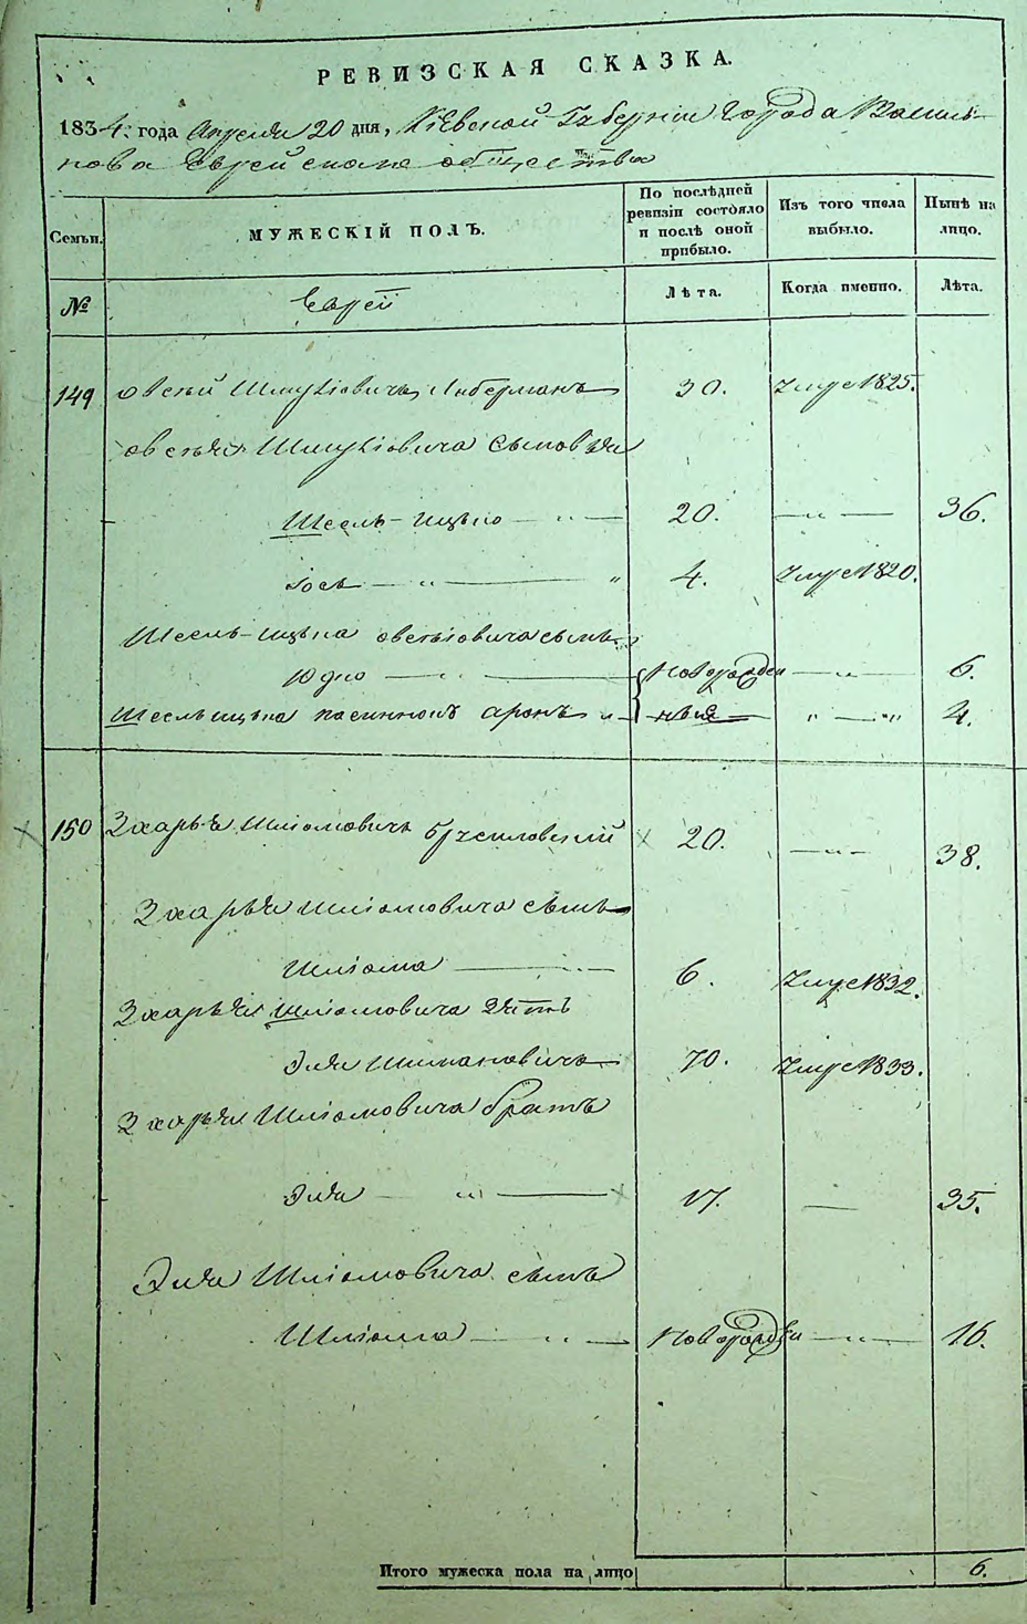 РЕВИЗСКАЯ СКАЗКА.
1834. года Апреля 20 дня, Кіевской Губерніи Города Василь-
кова Еврейскаго общества
Семьи.
МУЖЕСКІЙ ПОЛЪ.
По послѣдней ревизіи состояло и послѣ оной прибыло.
Изъ того числа выбыло.
Нынѣ на лицо.
№
Еврей
Лѣта.
Когда именно.
Лѣта.
149 Овсѣй Шмуліовичъ Либерманъ 30. Умре 1825.
Овсѣя Шмуліовича Сыновья
Шселъ-Ицько — „ — 20. — „ — 36.
Іось — „ — „ 4. Умре 1820.
Шселъ-Ицька Овсѣіовича сынъ
Юдко — „ — Новорожден — „ — 6.
Шселъ ицька пасинокъ Аронъ „ — ные — „ — „ 4.
150 Зхарья Шліомовичъ 20. — „ — 38.
Зхарья Шліомовича сынъ
Шліома — 6. Умре 1832.
Зхарья Шліомовича зять
Эля Шимановичъ 70. Умре 1833.
Зхарья Шліомовича братъ
Эля — „ — 17. — 35.
Эля Шліомовича сынъ
Шліома — „ — Новорожден — „ — 16.
Итого мужеска пола на лицо 6.